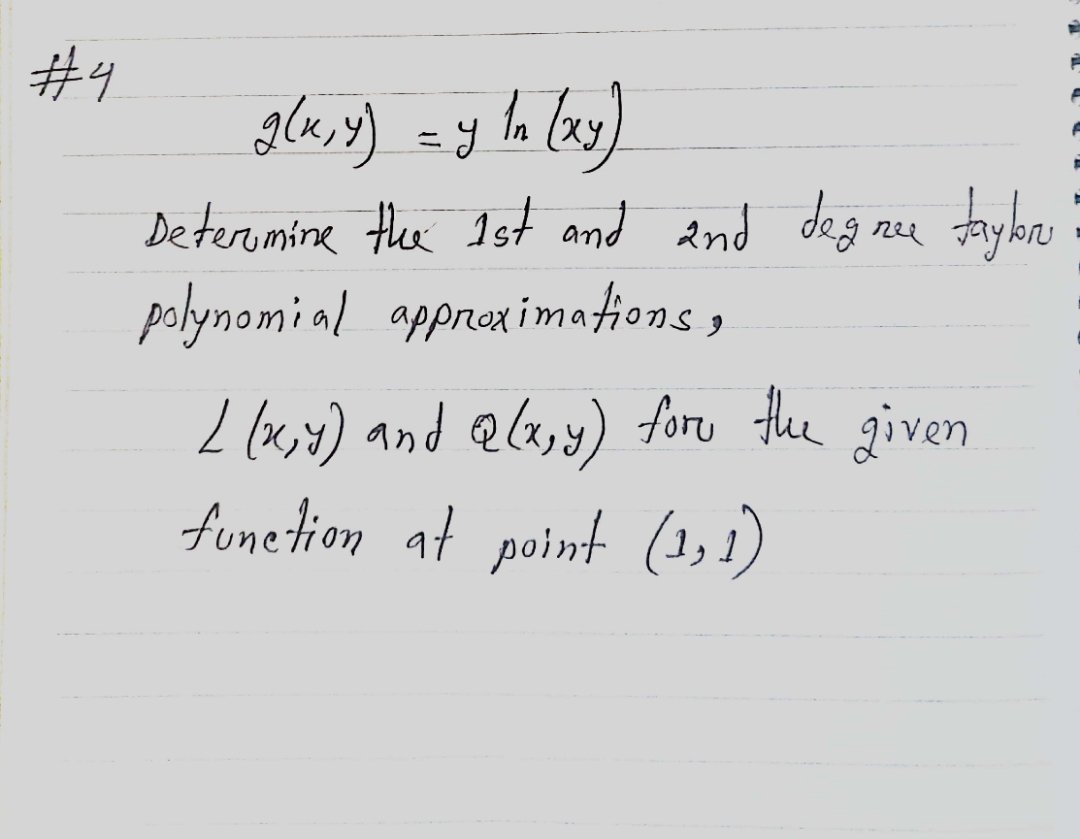 #4
g(x,y) = y ln (xy)
Determine the 1st and 2nd degree taylor
polynomial approximations,
L (x,y) and Q(x,y) for the given
function at point (1,1)